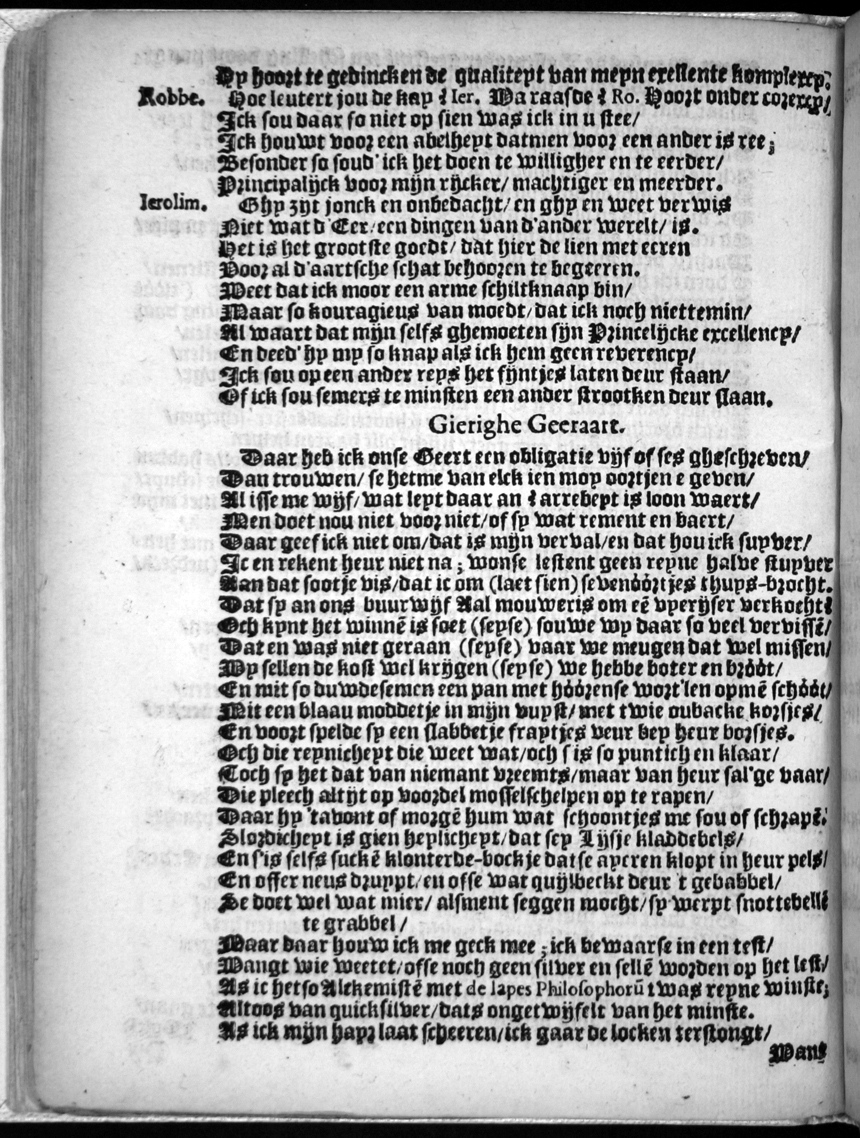 Gy hoort te gedincken de qualiteyt van meyn exellente komplexcy.
Robbe. Hoe leutert jou de kap? Ier. Wa raasde? Ro. Hoort onder correxcy/
Ick sou daar so niet op sien was ick in u stee/
Ick houwt voor een abelheyt datmen voor een ander is ree;
Besonder so soud' ick het doen te willigher en te eerder/
Principalijck voor mijn rijcker/ machtiger en meerder.
Ierolim. Ghy zijt jonck en onbedacht/ en ghy en weet ver wis
Niet wat d'Eer/een dingen van d'ander werelt/ is.
Het is het grootste goedt/ dat hier de lien met eeren
Voor al d'aartsche schat behooren te begeeren.
Weet dat ick moor een arme schiltknaap bin/
Maar so kouragieus van moedt/ dat ick noch niettemin/
Al waart dat mijn selfs ghemoeten sijn Princelijcke excellency/
En deed' hy my so knap als ick hem geen reverency/
Ick sou op een ander reys het fijntjes laten deur staan/
Of ick sou semers te minsten een ander strootken deur slaan.
Gierighe Geeraart.
Daar heb ick onse Geert een obligatie vijf of ses gheschreven/
Dan trouwen/ se hetme van elck ien moy oortjen e geven/
Al isse me wijf/ wat leyt daar an? arrebeyt is loon waert/
Men doet nou niet voor niet/ of sy wat rement en baert/
Daar geef ick niet om/dat is mijn verval/en dat hou ick suyver/
Ic en rekent heur niet na; wonse lestent geen reyne halve stuyver
Aan dat sootje vis/dat ic om (laet sien) sevenóórtjes thuys-brocht.
Dat sy an ons buurwijf Aal mouweris om eẽ vyerijser verkocht?
Och kynt het winnẽ is soet (seyse) souwe wy daar so veel vervissẽ/
Dat en was niet geraan (seyse) vaar we meugen dat wel missen/
Wy sellen de kost wel krijgen (seyse) we hebbe boter en bróót/
En mit so duwdesemen een pan met hóórense wort'len opmẽ schóót/
Mit een blaau moddetje in mijn vuyst/ met twie oubacke korsjes/
En voort spelde sy een slabbetje fraytjes veur bey heur borsjes.
Och die reynicheyt die weet wat/och s'is so puntich en klaar/
Toch sy het dat van niemant vreemts/maar van heur sal'ge vaar/
Die pleech altijt op voordel mosselschelpen op te rapen/
Daar hy 'tavont of morgẽ hum wat schoontjes me sou of schrapẽ.
Slordicheyt is gien heylicheyt/dat sey Lijsje kladdebels/
En s'is selfs suckẽ klonterde-bockje datse ayeren klopt in heur pels/
En offer neus druypt/en ofse wat quijlbeckt deur 't gebabbel/
Se doet wel wat mier/ alsment seggen mocht/sy werpt snottebellẽ
te grabbel/
Maar daar houw ick me geck mee; ick bewaarse in een test/
Wangt wie weetet/ofse noch geen silver en sellẽ worden op het lest/
As ic het so Alckemistẽ met de lapes Philosophorũ twas reyne winste;
Altoos van quicksilver/dats ongetwijfelt van het minste.
As ick mijn hayr laat scheeren/ick gaar de locken terstongt/
Wangt